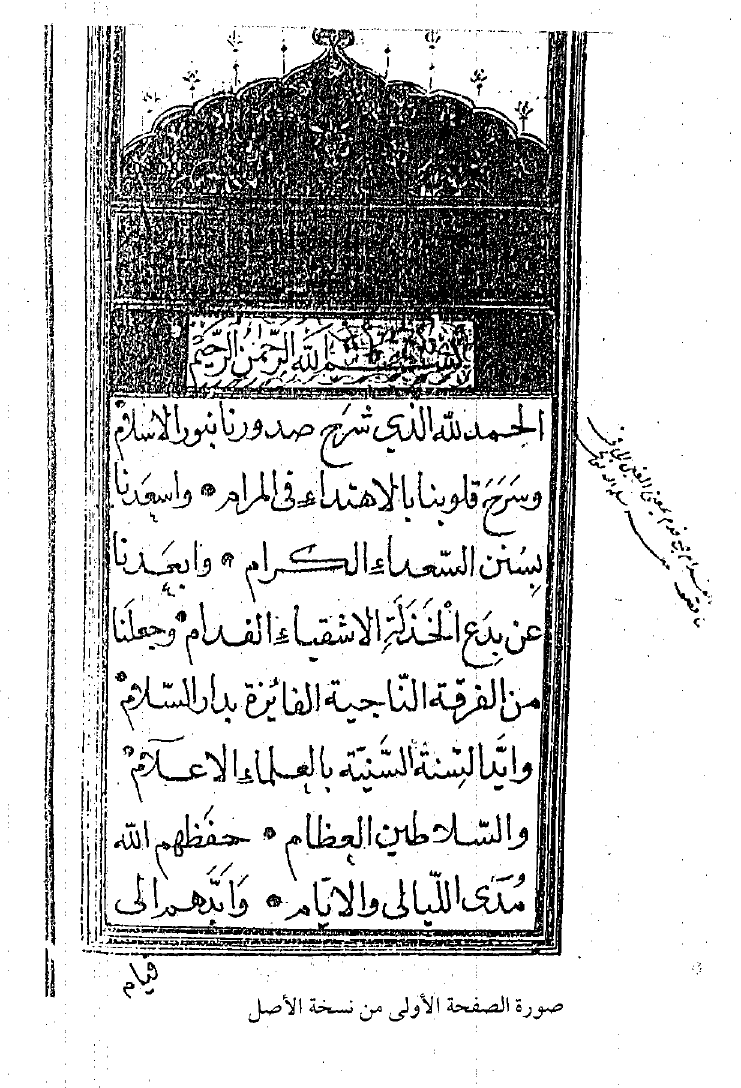 بسم الله الرحمن الرحيم
الحمد لله الذي شَرَحَ صدورنا بنور الاسلام
وسَرَحَ قلوبنا بالاهتداء في المرام ۞ واسعدنا
بِسُنن السّعداء الكرام ۞ وابعدنا
عن بِدَع الْخَذَلَةِ الاشقياء الفدام ۞ وجعلَنا
من الفرقة النّاجية الفائزة بدار السّلام ۞
وايّد السّنة السَّنيّة بالعلماء الاعلام ۞
والسّلاطين العظام ۞ حفَظهم الله
مُدَى اللّيالى والايّام ۞ وَابَّدهم الى
قيام
صورة الصفحة الأولى من نسخة الأصل